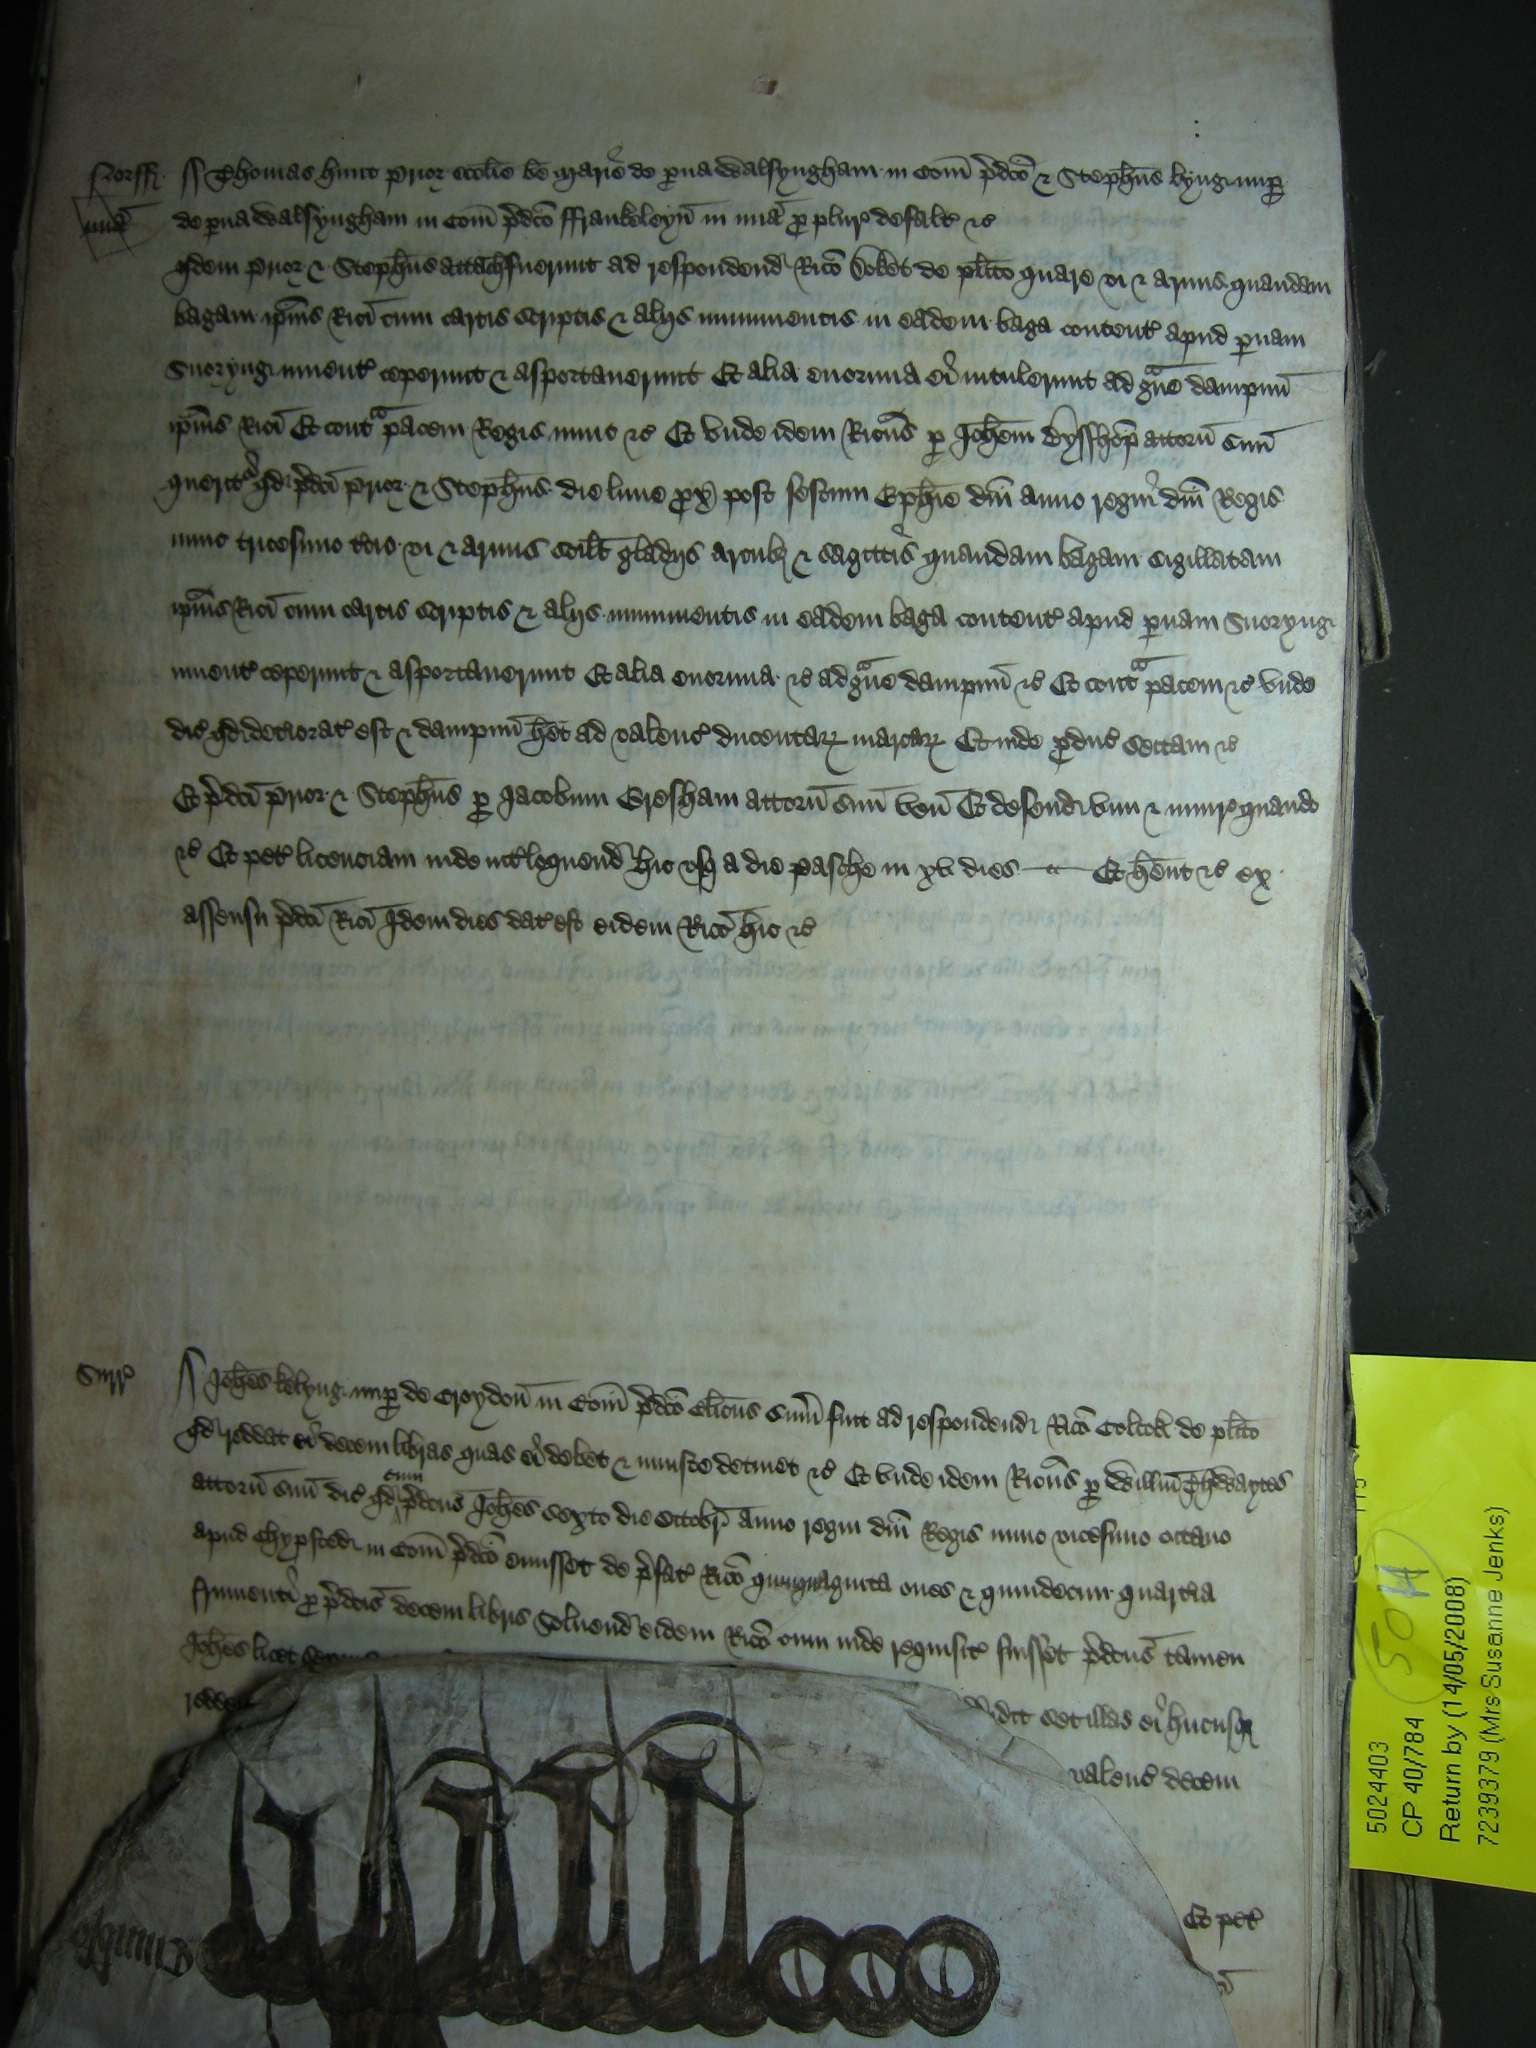 Norff̃
mĩa
Thomas hunt Prior ecclie be Marie de parua Walsyngham in Com̃ p̃dc̃o & Stephũs byng nup
de parua Walsyngham in Com̃ p̃dc̃o ffrankeleyn̄ in mĩa p̱ plur̃ defalt̃ &c̃
qd̃em Prior & Stephũs attach̃ fuerunt ad respondend̃ Ric̃o Doket de plĩto quare vi & armis quandam
bagam ip̃ius Ric̃i cum cartis scriptis & alijs munimentis in eadem baga content̃ apud paruam
Snoryng inuent̃ ceperunt & asportauerunt Et alia enormia ei intulerunt ad gũe dampnũ
ip̃ius Ric̃i Et contᵃ pacem Regis nunc &c̃ Et vnde idem Ric̃us p̱ Joh̃em attorñ suũ
querit̃ qd̃ p̃dc̃i Prior & Stephũs die lune prox̃ post festum Ephĩe dñi anno regni dñi Regis
nunc tricesimo t̃cio vi & armis scilt̃ gladijs arcub3 & sagittis quandam bagam sigillatam
ip̃ius Ric̃i cum cartis scriptis & alijs munimentis in eadem baga content̃ apud paruam Snoryng
inuent̃ ceperunt & asportauerunt Et alia enormia &c̃ ad gᵃue dampnũ &c̃ Et contᵃ pacem &c̃ vnde
dic̃ qd̃ deteriorat̃ est & dampnũ het̃ ad valenc̃ ducentar̃ marcar̃ Et inde p̱duc̃ sectam &c̃
Et p̃dc̃i Prior & Stephũs p̱ Jacobum Gresham attorñ suũ veñ Et defend̃ vim & iniur̃ quando
&c̃ Et pet̃ licenciam inde int̃loquend̃ hic vsq3 a die Pasche in xv dies Et hẽnt &c̃ ex
assensu p̃dc̃i Ric̃i Idem dies dat̃ est eidem Ric̃o hic &c̃
Surr̃
Joh̃es kelyng nup de Croydoñ in Com̃ p̃dc̃o Clic̃us sum̃ fuit ad respondend̃ Ric̃o Colcok de plĩto
qd̃ reddat ei decem libras quas ei debet & iniuste detinet &c̃ Et vnde idem Ric̃us p̱ Willm̃ Thwaytes
attorñ suũ dic̃ qd̃ cum p̃dc̃us Joh̃es sexto die Octobr̃ anno regni dñi Regis nunc vicesimo octauo
apud Chypsted in Com̃ p̃dc̃o emisset de p̃fat̃ Ric̃o quinquaginta oues & quindecim quart̃ia
frumenti p̱ p̃dc̃is decem libris soluend̃ eidem Ric̃o cum inde requisit̃ fuisset p̃dc̃us tamen
Joh̃es licet
redd set illas ei hucusq3
valenc̃ decem
Et pet̃
5024403
CP 40/784
Return by (14/05/2008)
7239379 (Mrs Susanne Jenks)